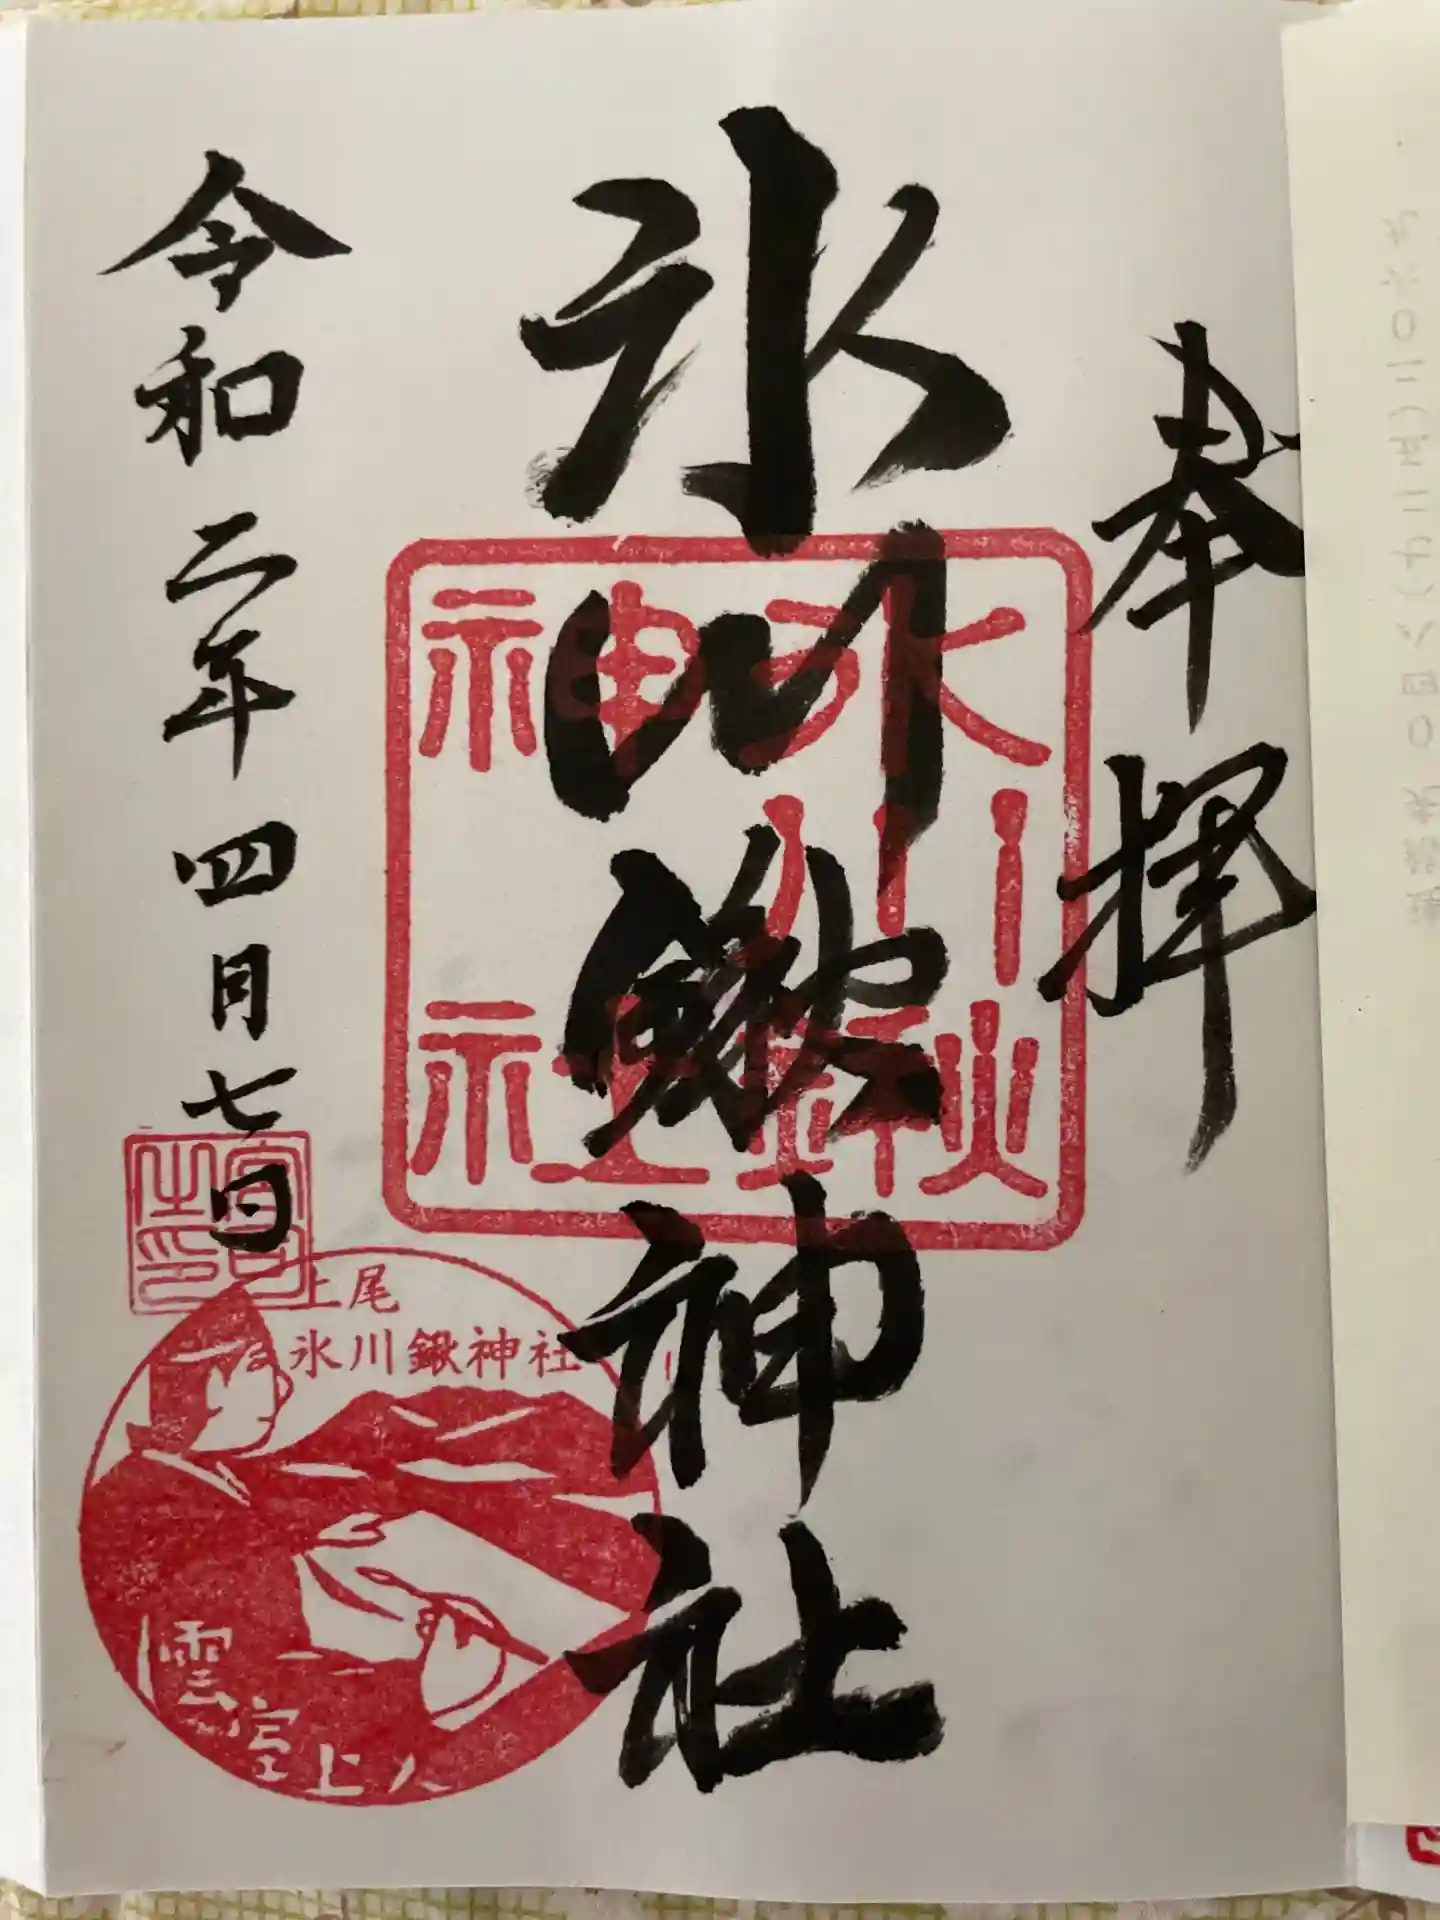 奉拝
氷川鍬神社
令和二年四月七日
氷川
鍬
神
社
宮司
之印
上尾
氷川鍬神社
雲室上人